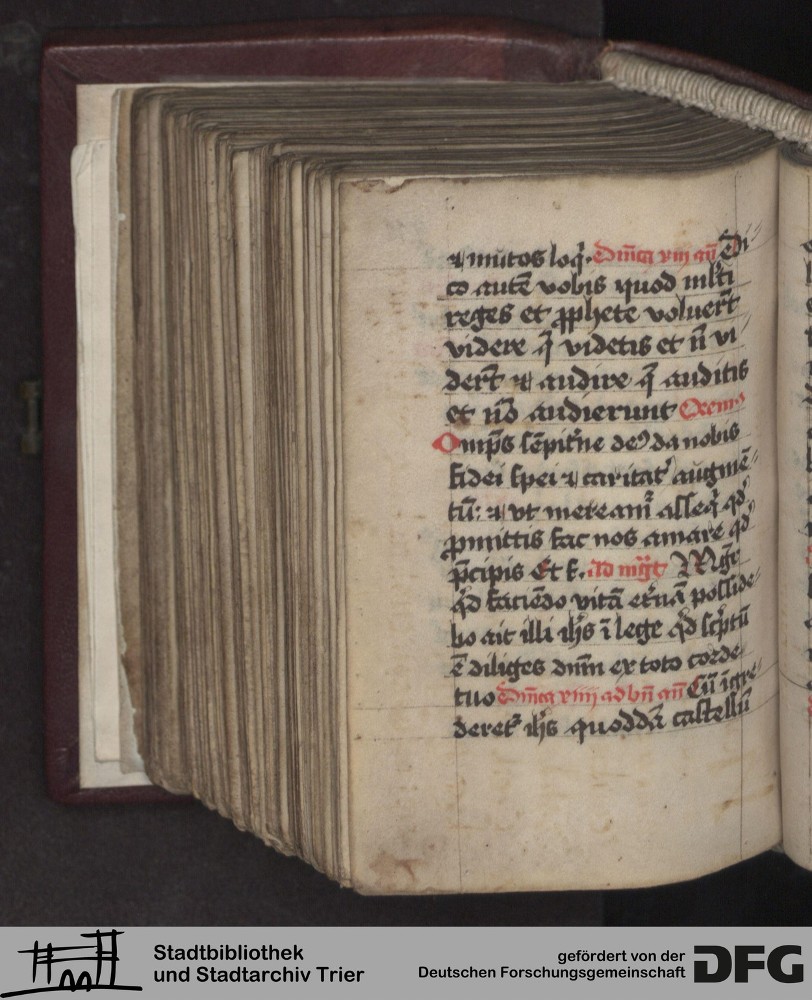 ⁊ mutos loq̄. Dn̄ica xiij an̄ Di
co autē vobis quod ml̄ti
reges et ꝓphete voluer̄t
videre q̄ videtis et n̄ vi
der̄t ⁊ audire q̄ auditis
et nō audierunt Oremꝰ
Omp̄s sēpit̄ne deꝰ da nobis
fidei spei ⁊ caritat᷒ augmē
tū: ⁊ vt meream᷒ asseq̄ qd̓
ꝓmittis fac nos amare qd̓
p̄cipis Et f. Ad mg̅t Mg̅r
qd̓ faciēdo vitā et̓nā posside
bo ait illi ih̄s ī lege qd̓ sc̓ptū
ē diliges dn̄m ex toto corde
tuo Dn̄ica xiiij ad bn̄ an̄ Cū īgre
deret᷒ ih̄s quoddā castellū
Stadtbibliothek
und Stadtarchiv Trier
gefördert von der
Deutschen Forschungsgemeinschaft
DFG